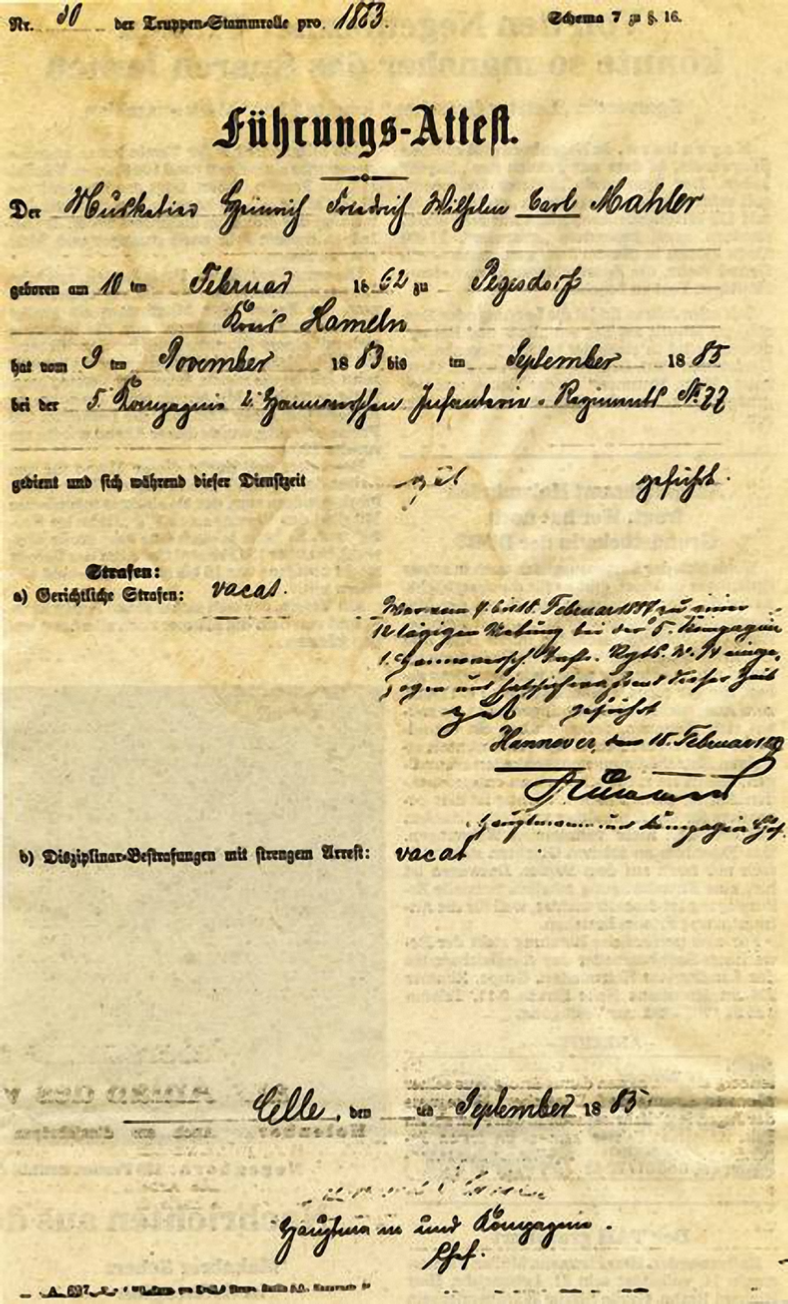 Nr. 30 der Truppen-Stammrolle pro 1883. Schema 7 zu §. 16.
Führungs-Attest.
Der Musketier Heinrich Friedrich Wilhelm Carl Mahler
geboren am 10 ten Februar 1862 zu Pegesdorf
Kreis Hameln
hat vom 9 ten November 1883 bis ten September 1885
bei der 5. Kompagnie 2. Hannoverschen Infanterie-Regiments No. 77
gedient und sich während dieser Dienstzeit gut geführt.
Strafen:
a) Gerichtliche Strafen: vacat.
War vom 7. bis 18. Februar zu einer
12 tägigen Uebung bei der 5. Kompagnie
1. Hannoversch. Inftr. Rgts. No. 74 einge-
zogen und hat sich während dieser Zeit
gut geführt
Hannover, den 18. Februar
Hauptmann und Kompagnie Chef.
b) Disziplinar-Bestrafungen mit strengem Arrest: vacat
Celle, den ten September 1885
Hauptmann und Kompagnie-
Chef.